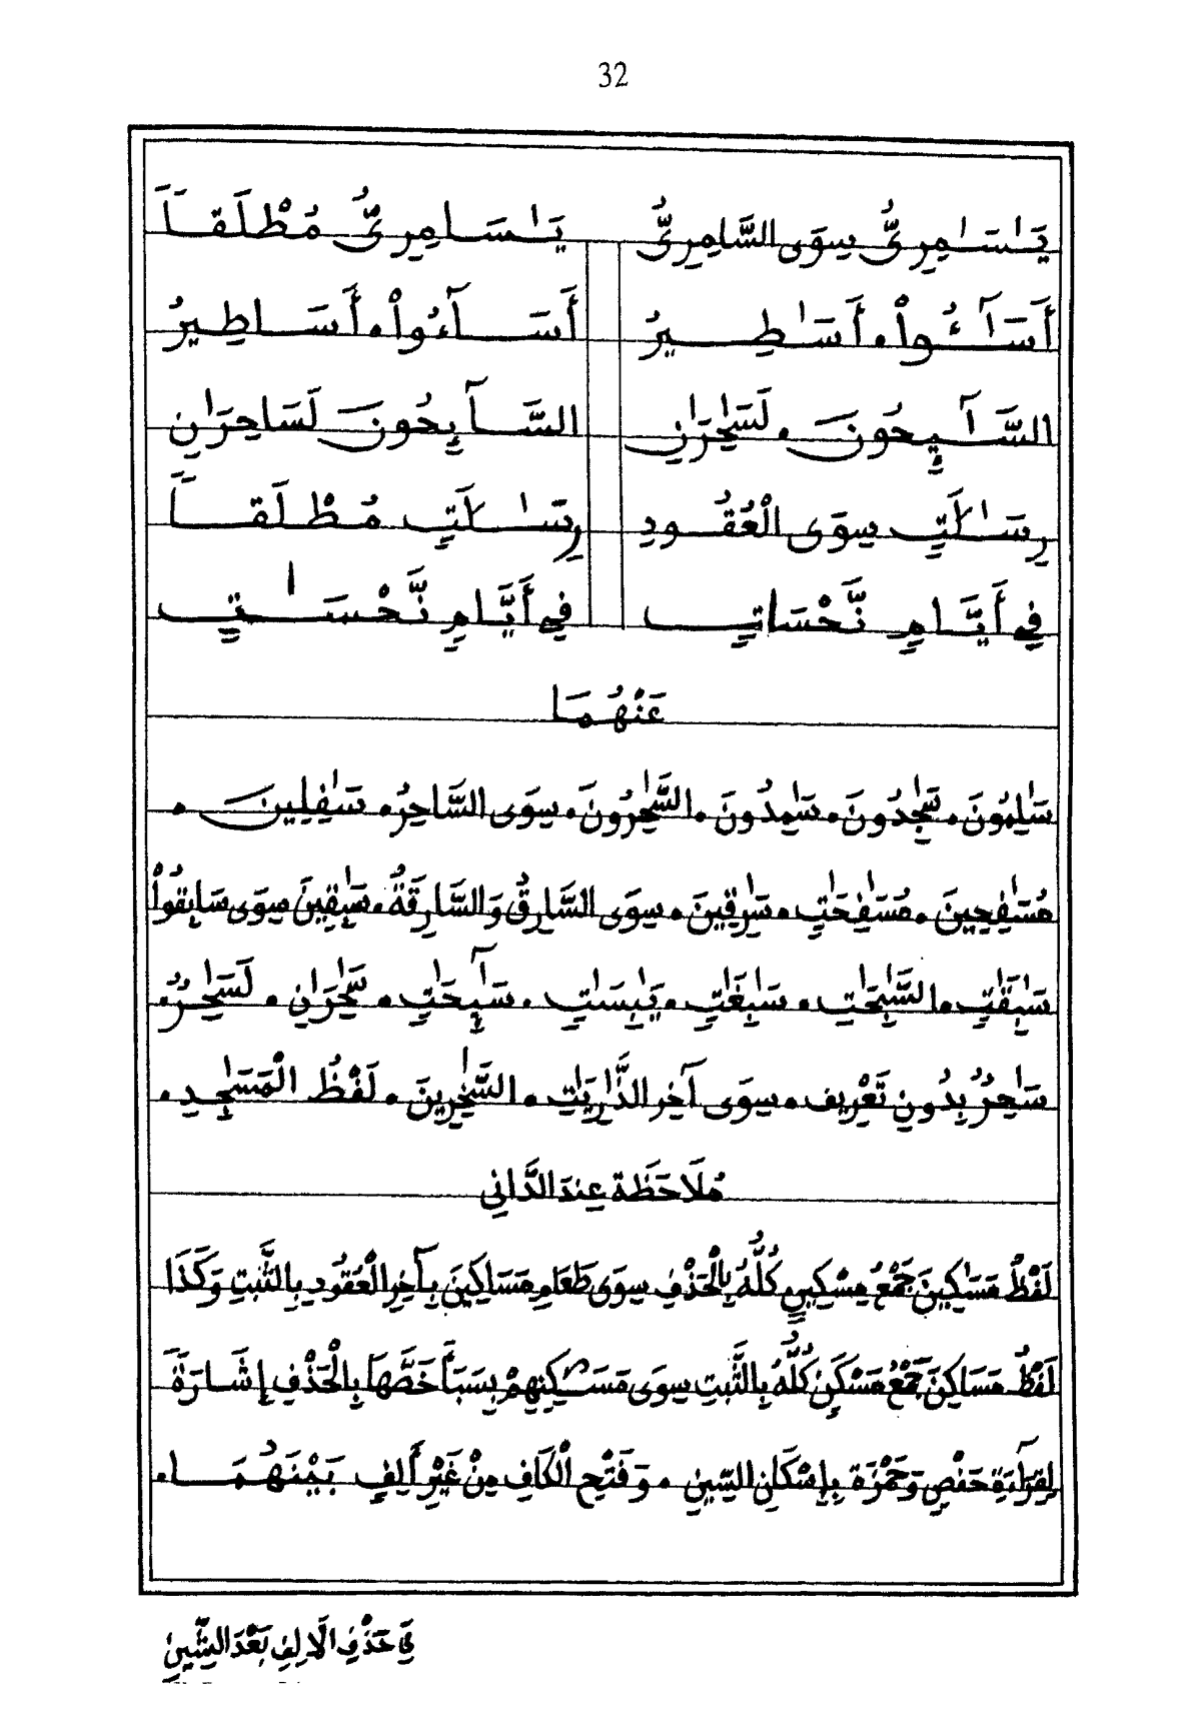 32
يَٰسَٰمِرِىُّ سِوَى السَّامِرِىُّ يَٰسَامِرِىُّ مُطْلَقاً
أَسَٰٓـُٔواْ • أَسَٰطِيرُ أَسَآءُواْ • أَسَاطِيرُ
السَّٰٓئِحُونَ • لَسَٰحِرَٰنِ السَّآئِحُونَ لَسَاحِرَٰنِ
رِسَٰلَٰتِ سِوَى الْعُقُودِ رِسَٰلَٰتِ مُطْلَقاً
فِي أَيَّامٍ نَّحْسَاتٍ فِي أَيَّامٍ نَّحْسَٰتٍ
عَنْهُمَا
سَٰلِمُونَ • سَٰجِدُونَ • سَٰمِدُونَ • السَّٰحِرُونَ • سِوَى السَّاحِرُ • سَٰفِلِينَ •
مُسَٰفِحِينَ • مُسَٰفِحَٰتٍ • سَٰرِقِينَ • سِوَى السَّارِقُ وَالسَّارِقَةُ • سَٰبِقِينَ سِوَى سَابِقُواْ
سَٰبِقَٰتِ • السَّٰبِحَٰتِ • سَٰبِغَٰتٍ • يَابِسَٰتٍ • سَٰٓئِحَٰتٍ • سَٰحِرَٰنِ • لَسَٰحِرٌ •
سَٰحِرٌ بِدُونِ تَعْرِيف • سِوَى آخِرِ الذَّٰرِيَٰتِ • السَّٰخِرِينَ • لَفْظُ الْمَسَٰجِدِ •
مُلَاحَظَة عِندَ الدَّانِي
لَفْظُ مَسَٰكِينَ جَمْعُ مِسْكِينٍ كُلُّهُ بِالْحَذْفِ سِوَى طَعَامِ مَسَاكِينَ بِآخِرِ الْعُقُودِ بِالثَّبتِ وَكَذَا
لَفْظُ مَسَاكِنَ جَمْعُ مَسْكَنٍ كُلُّهُ بِالثَّبتِ سِوَى مَسَٰكِنِهِمْ بِسَبَأَ خَصَّهَا بِالْحَذْفِ إِشَارَةً
لِقِرَآءَةِ حَفْصٍ وَحَمْزَة بِإِسْكَانِ السِّينِ • وَفَتْحِ الْكَافِ مِنْ غَيْرِ أَلِفٍ بَيْنَهُمَا •
فِي حَذْفِ الَالِفِ بَعْدَ الشِّينِ